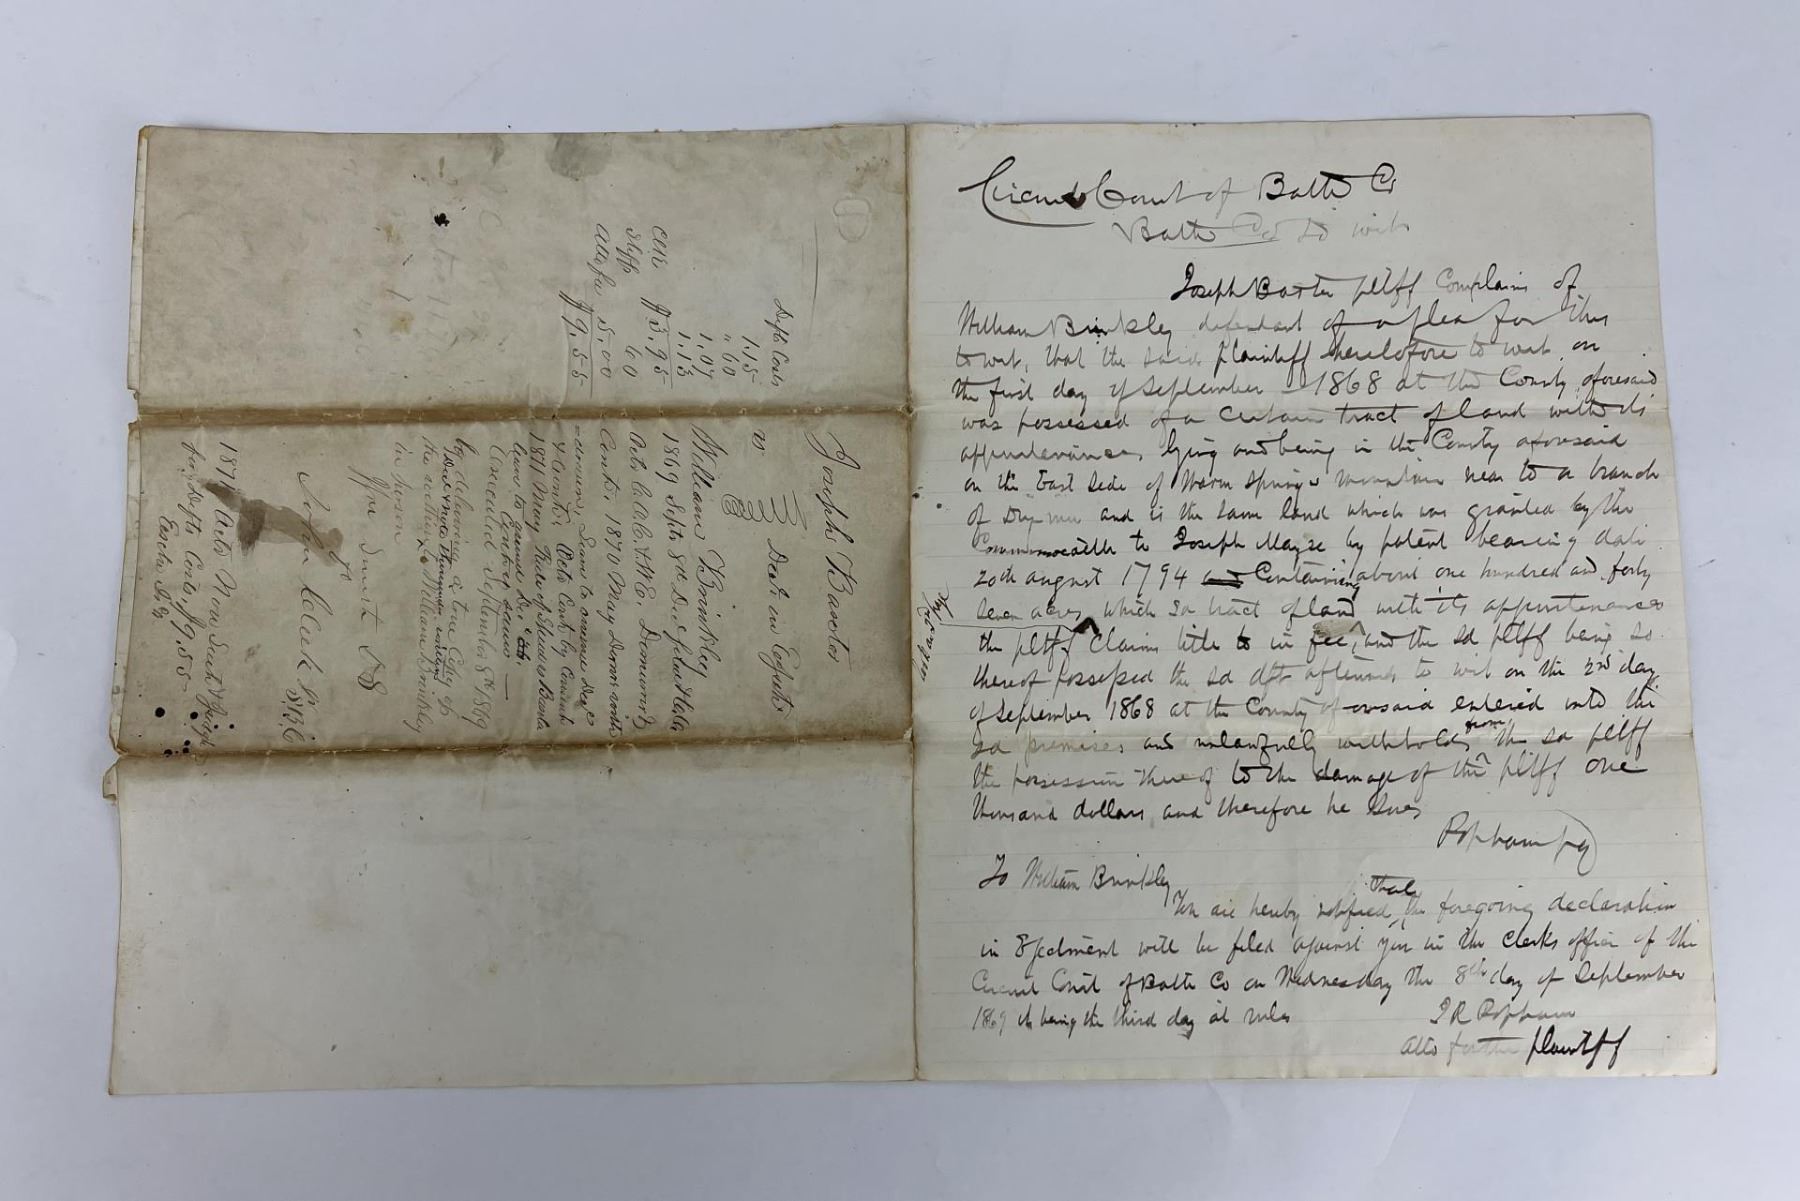 Circuit Court of Bath Co
Bath Co to wit
Joseph Baxter pltff Complains of
William Brinkley defendant of a plea for this
to wit, that the said plaintiff heretofore to wit, on
the first day of September 1868 at the County aforesaid
was possessed of a certain tract of land with its
appurtenances lying and being in the County aforesaid
on the East side of Warm Springs Mountain near to a branch
of Dry run and is the same land which was granted by the
Commonwealth to Joseph Mayse by patent bearing date
20th august 1794 Containing about one hundred and forty
seven acres, which sd tract of land with its appurtenances
the pltff Claims title to in fee, and the sd pltff being so
thereof possessed the sd dft afterwards to wit on the 2nd day
of September 1868 at the County aforesaid entered into the
sd premises and unlawfully withholds from the sd pltff
the possession thereof to the damage of the pltff one
thousand dollars and therefore he Sues
Popham pq
To William Brinkley
You are hereby notified that the foregoing declaration
in Ejectment will be filed against you in the Clerks office of the
Circuit Court of Bath Co on Wednesday the 8th day of September
1869 it being the third day of rules
J R Popham
Atto for the plaintiff
Joseph Baxter
vs Decl in Ejectmt
William Brinkley
1869 Septr 8th Decl filed
Acts C.O.C. & W.E. Demurrer &
Contd. 1870 May Demr
Leave to amend Decl
& Contd. Octo Contd by Consent
1871 May
leave to amend Dec
Executed September 8th 1869
by delivering a true Copy of
the within to William Brinkley
in person
John Cleek
S.B.C
1871 Octo Non Suit &
for Defts Costs, $9.55
Defts Costs
1.15
" 60
1.07
1.13
Clk $3.95
Shff 60
Atto fee 5.00
$9.55